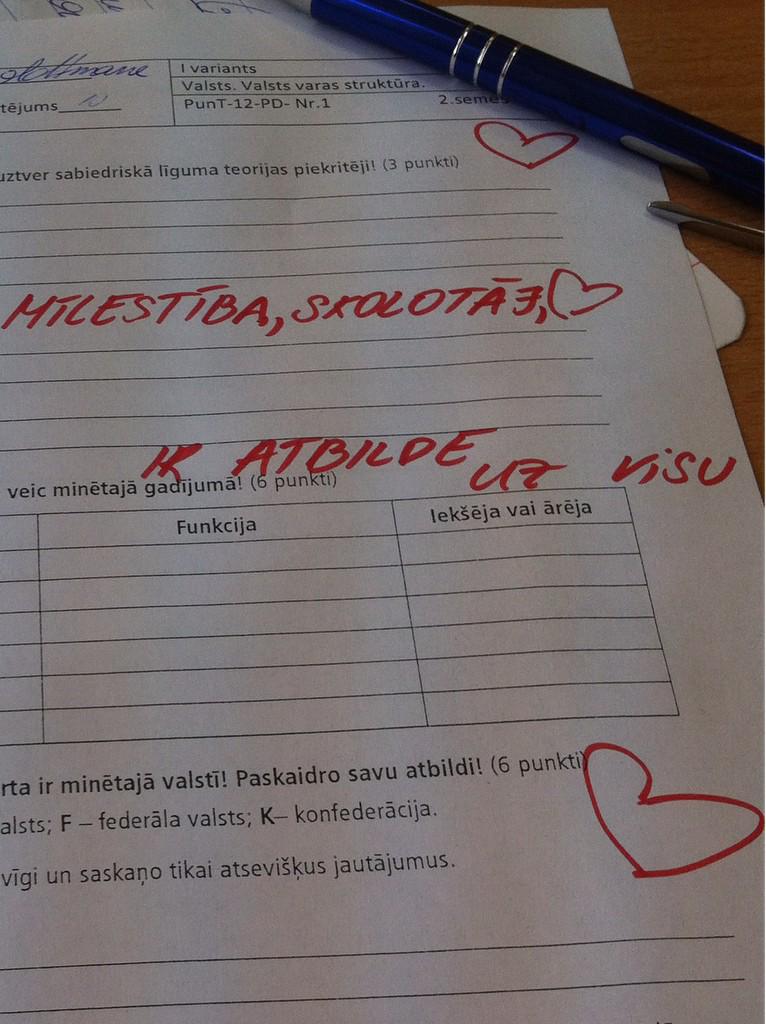 I variants
Valsts. Valsts varas struktūra.
tējums
PunT-12-PD- Nr.1 2.semes
uztver sabiedriskā līguma teorijas piekritēji! (3 punkti)
MĪLESTĪBA, SKOLOTĀJ,
IR ATBILDE UZ VISU
veic minētajā gadījumā! (6 punkti)
Funkcija Iekšēja vai ārēja
rta ir minētajā valstī! Paskaidro savu atbildi! (6 punkti)
alsts; F – federāla valsts; K– konfederācija.
vīgi un saskaņo tikai atsevišķus jautājumus.